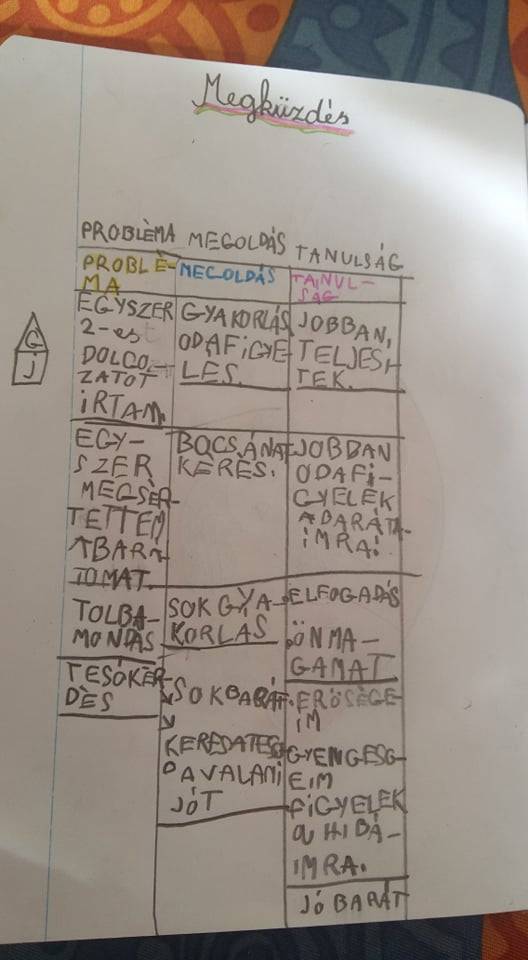 Megküzdés
PROBLÈMA MEGOLDÁS TANULSÁG
PROBLÈ-
MA
MEGOLDÁS
TANUL-
SÁG
G
J
EGYSZER
2-est
DOLGO-
ZATOT
IRTAM.
GYAKORLÁS
ODAFIGYE-
LÉS.
JOBBAN,
TELJESI-
TEK.
EGY-
SZER
MEGSÈR-
TETTEM
ABARÁ
TOMAT.
BOCSÁNAT
KÉRÉS.
JOBBAN
ODAFI-
GYELEK
ABARÁTA-
IMRA!
TOLBA-
MONDÁS
SOK GYA-
KORLÁS
ELFOGADÁS
ÖNMA-
GAMAT
TESÓKÉR-
DÈS
SOKBARÁT
KERES
JÓT
ERÖSÈGE-
IM
GYENGESG-
EIM
FIGYELEK
a HIBÁ-
IMRA.
JÓ BARÁT